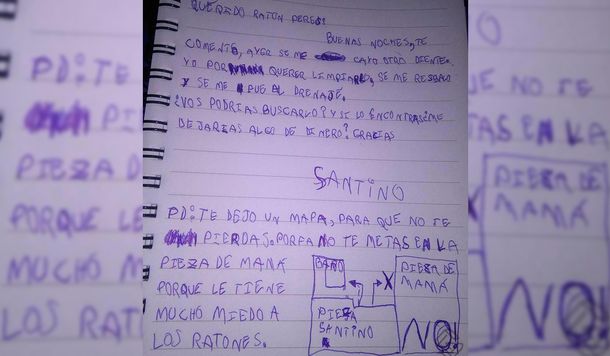 QUERIDO RATON PEREZ:
BUENAS NOCHES, TE
COMENTO, AYER SE ME CAYO OTRO DIENTE.
YO POR QUERER LIMPIARLO, SE ME RESBALO
Y SE ME FUE AL DRENAJE.
¿VOS PODRIAS BUSCARLO? Y SI LO ENCONTRAS ¿ME
DEJARIAS ALGO DE DINERO? GRACIAS
SANTINO
PD: TE DEJO UN MAPA, PARA QUE NO TE
PIERDAS. PORFA NO TE METAS EN LA
PIEZA DE MAMÁ
PORQUE LE TIENE
MUCHO MIEDO A
LOS RATONES.
BAÑO
X
PIEZA DE
MAMÁ
PIEZA
SANTINO
NO!